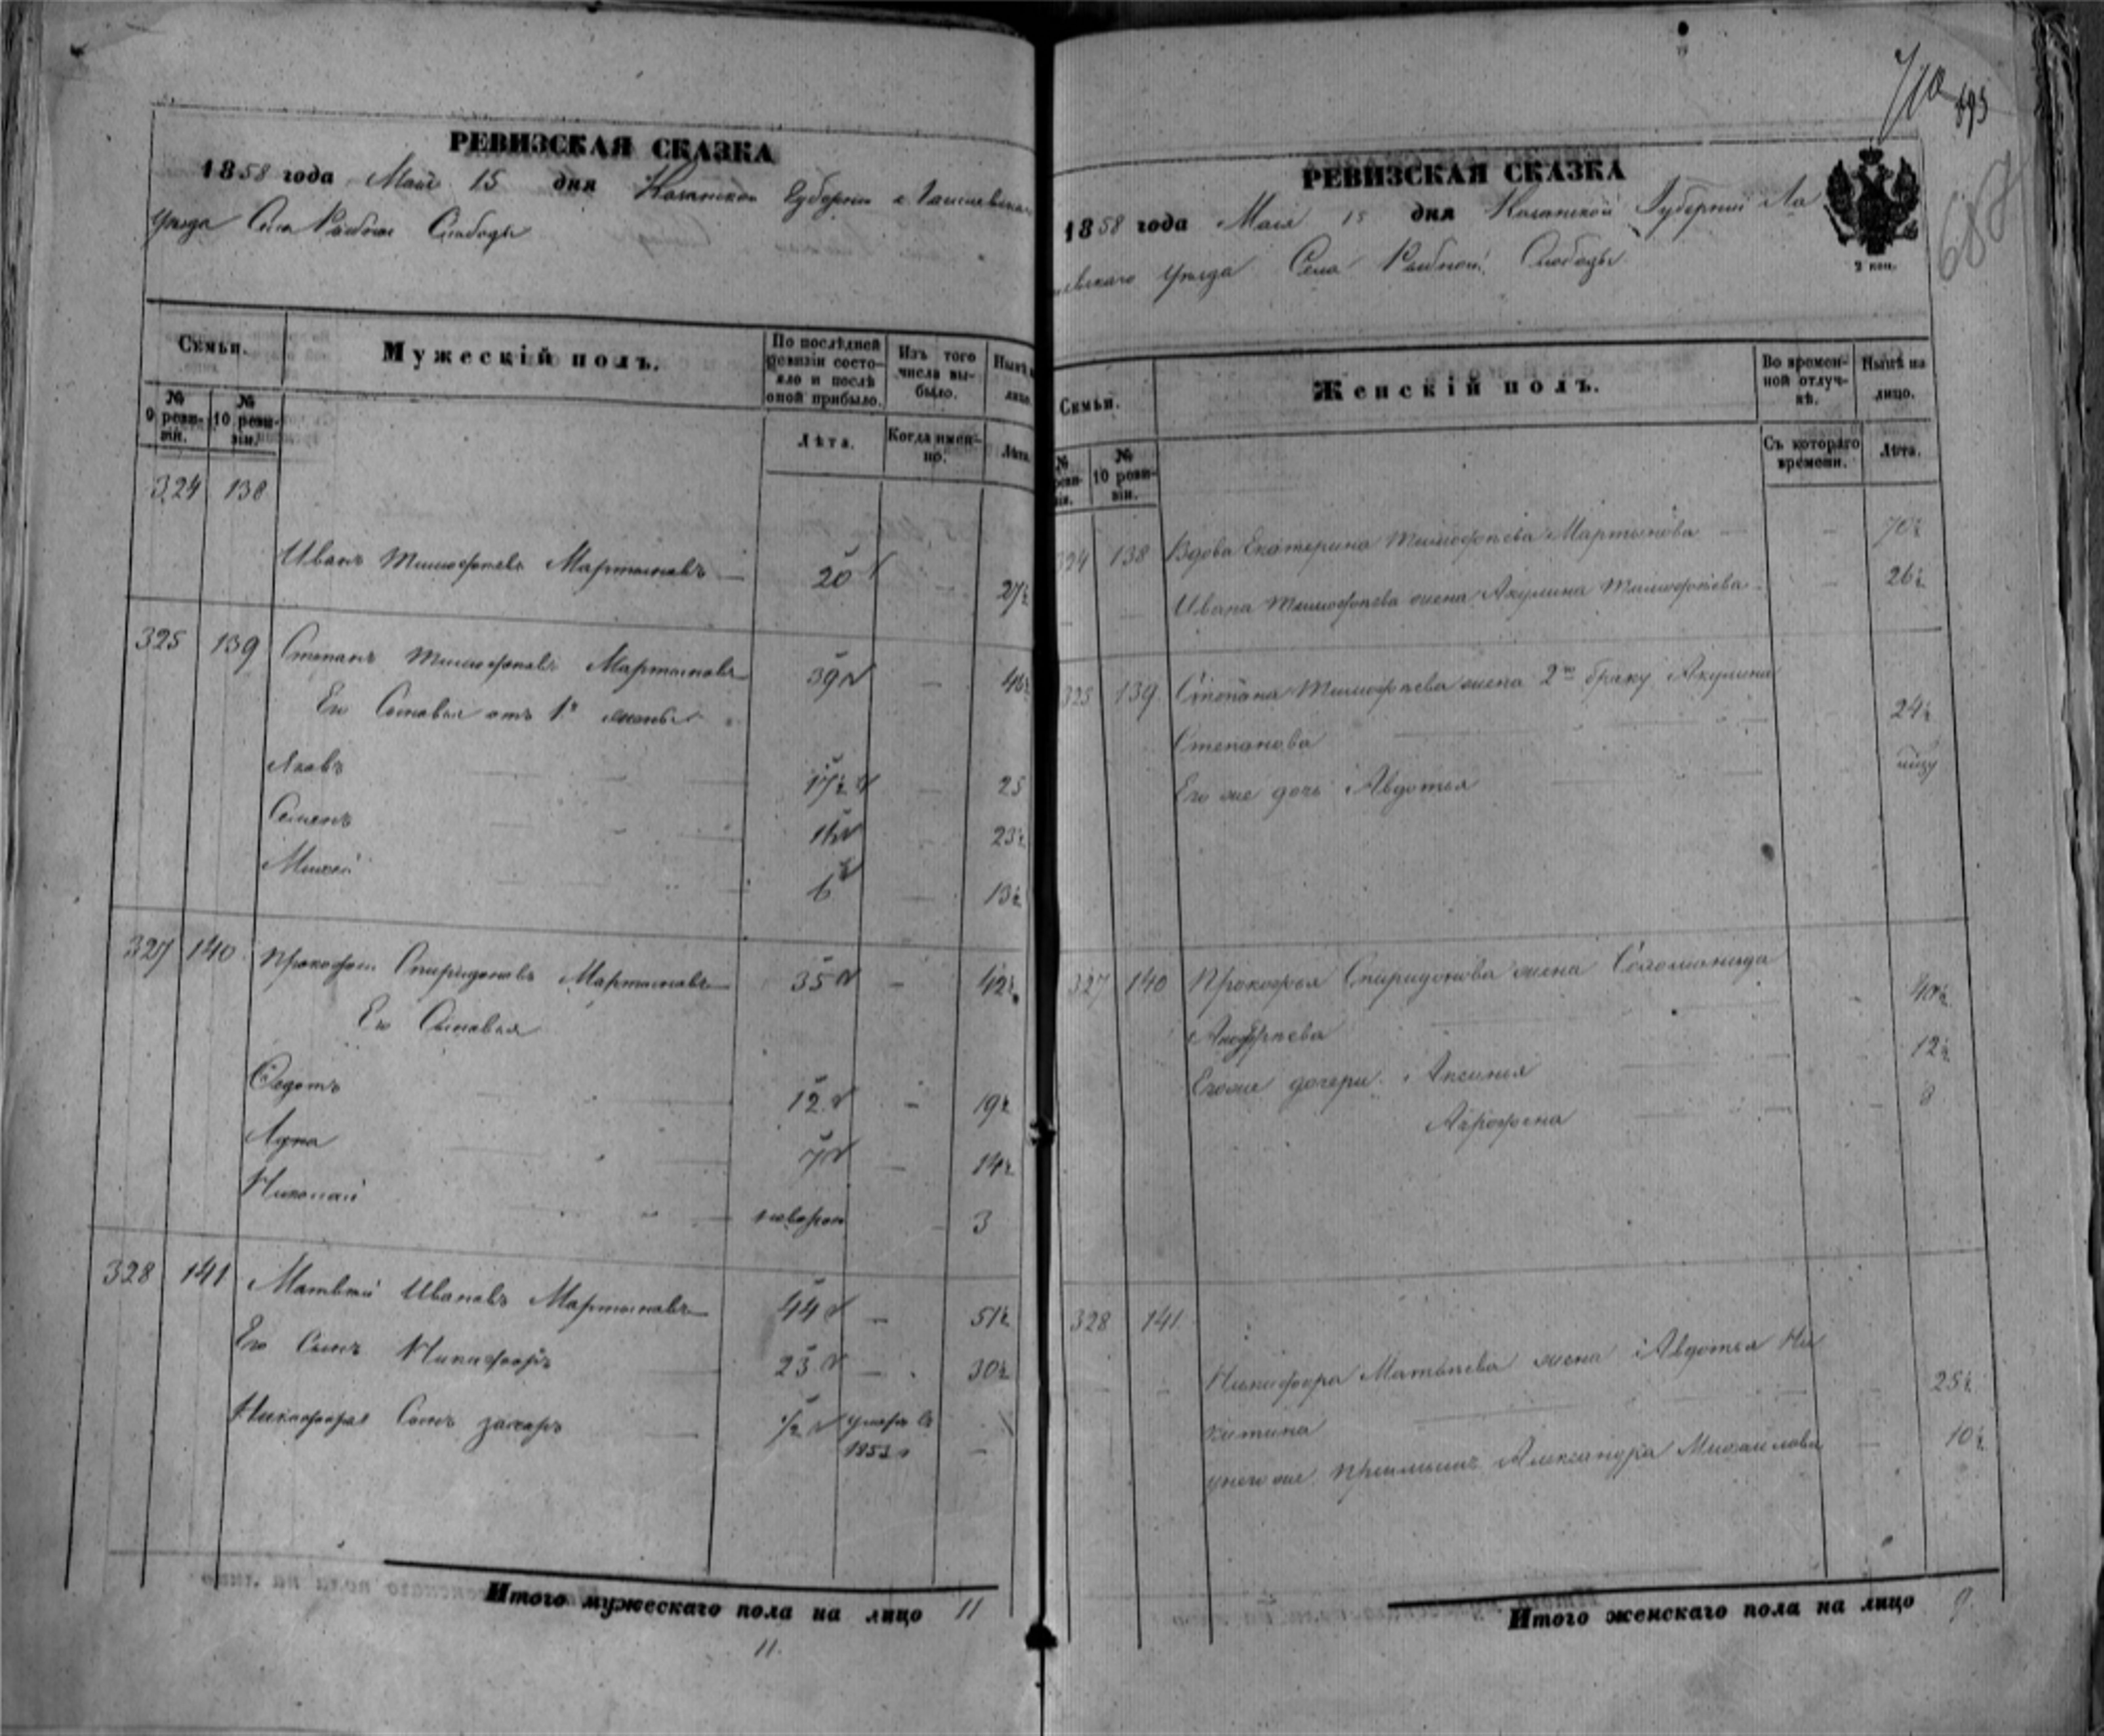 710
695
687
РЕВИЗСКАЯ СКАЗКА
1858 года Мая 15 дня Казанской Губернии Лаишевскаго
Уѣзда Села Рыбной Слободы
Семьи.
Мужескій полъ.
По послѣдней ревизіи состояло и послѣ оной прибыло.
Изъ того числа выбыло.
Нынѣ на лицо.
№ 9 ревизіи.
№ 10 ревизіи.
Лѣта.
Когда именно.
Лѣта.
324 138
Иванъ Тимофеевъ Мартыновъ 20 — 27
325 139 Степанъ Тимофеевъ Мартыновъ 39 — 46
Его Сыновья отъ 1й жены
Яковъ 17½ — 25
Семенъ — 23
Михей 6 — 13
327 140 Прокофей Спиридоновъ Мартыновъ 35 — 42
Его Сыновья
Федотъ 12 — 19
Лука 7 — 14
Николай новорож — 3
328 141 Матвей Ивановъ Мартыновъ 44 — 51
Его Сынъ Никифоръ 23 — 30
Никифора Сынъ Захаръ ½ умеръ въ —
1853
Итого мужескаго пола на лицо 11
11.
РЕВИЗСКАЯ СКАЗКА
1858 года Мая 15 дня Казанской Губерніи Ла
ишевскаго Уѣзда Села Рыбной Слободы
2 коп.
Семьи.
Женскій полъ.
Во временной отлучкѣ.
Нынѣ на лицо.
№ 10 ревизіи.
Съ котораго времени.
Лѣта.
324 138 Вдова Екатерина Тимофѣева Мартынова — 70
Ивана Тимофѣева жена Акулина Тимофѣева — 26
325 139 Степана Тимофѣева жена 2го браку Акулина
Степанова 24
Его же дочь Авдотья
327 140 Прокофья Спиридонова жена Соломонида
40
Его же дочери Аксинья 12
Агрофена 8
328 141
Никифора Матвѣева жена Авдотья Ни
китина 25
у него же Александра Михаилова 10
Итого женскаго пола на лицо 9